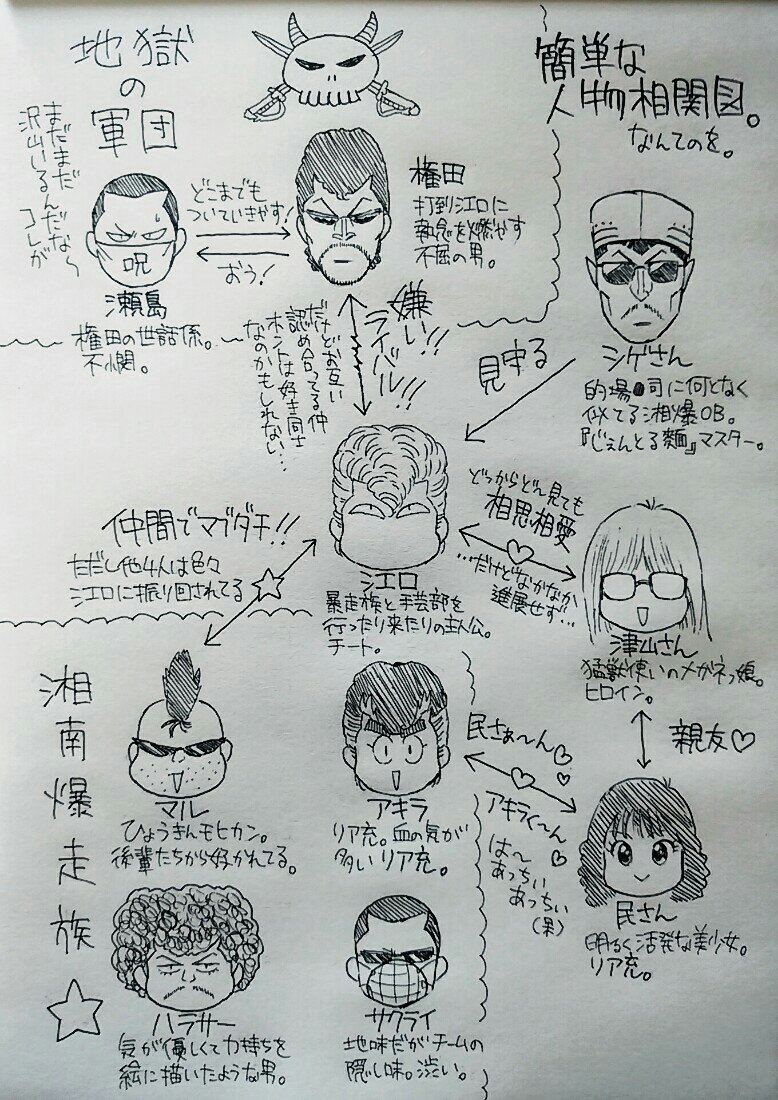 簡単な
人物相関図。
なんてのを。
地獄
の
軍団
まだまだ
沢山いるんだなら
コレが
呪
瀬島
権田の世話係。
不憫。
どこまでも
ついていきやす!
おう!
権田
打倒江口に
執念を燃やす
不屈の男。
シゲさん
的場●司に何となく
似てる湘爆OB。
『じぇんとる麺』マスター。
見守る
嫌い!!
ライバル!!
だけどお互い
認め合ってる仲
ホントは好き同士
なのかもしれない…
江口
暴走族と手芸部を
行ったり来たりの主人公。
チート。
どっからどー見ても
相思相愛
…だけどなかなか
進展せず…
津山さん
猛獣使いのメガネっ娘。
ヒロイン。
親友♡
仲間でマブダチ!!
ただし他4人は色々
江口に振り回されてる
湘南爆走族☆
マル
ひょうきんモヒカン。
後輩たちから好かれてる。
アキラ
リア充。血の気が
多いリア充。
民さぁ〜ん♡
アキラく〜ん♡
は〜
あっちい
あっちい
民さん
明るく活発な美少女。
リア充。
ハラサー
気が優しくて力持ちを
絵に描いたような男。
サクライ
地味だがチームの
隠し味。渋い。